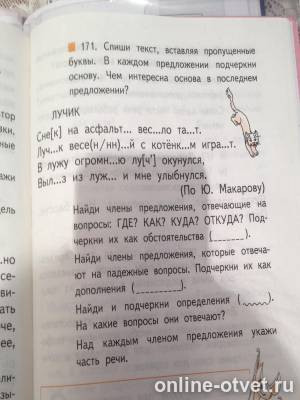 171. Спиши текст, вставляя пропущенные
буквы. В каждом предложении подчеркни
основу. Чем интересна основа в последнем
предложении?
ЛУЧИК
Сне[к] на асфальт... вес...ло та...т.
Луч...к весе(н/нн)...й с котёнк...м игра...т.
В лужу огромн...ю лу[ч'] окунулся,
Выл...з из луж... и мне улыбнулся.
(По Ю. Макарову)
Найди члены предложения, отвечающие на
вопросы: ГДЕ? КАК? КУДА? ОТКУДА? Под-
черкни их как обстоятельства (_._._._).
Найди члены предложения, которые отвеча-
ют на падежные вопросы. Подчеркни их как
дополнения (_ _ _ _ _).
Найди и подчеркни определения (﹏﹏).
На какие вопросы они отвечают?
Над каждым членом предложения укажи
часть речи.
тор
вки.
кажи
дель
.но
се-
ви-
че,
ее,
али-
online-otvet.ru